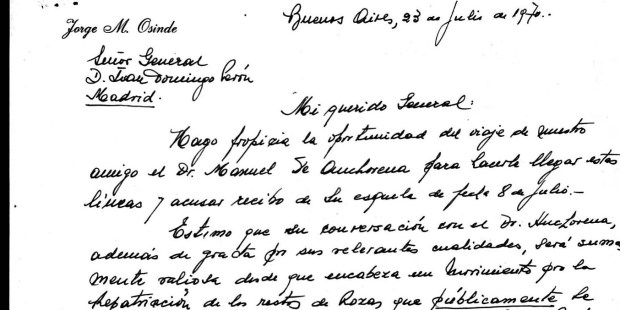 Jorge M. Osinde
Buenos Aires, 23 de Julio de 1970..
Señor General
D. Juan Domingo Perón
Madrid.
Mi querido General:
Hago propicia la oportunidad del viaje de nuestro
amigo el Dr. Manuel de Anchorena para hacerle llegar estas
líneas y acusar recibo de su esquela de fecha 8 de Julio.-
Estimo que su conversación con el Dr. Anchorena,
además de grata por sus relevantes cualidades, será suma
mente valiosa desde que encabeza un movimiento pro la
repatriación de los restos de Rozas que públicamente le